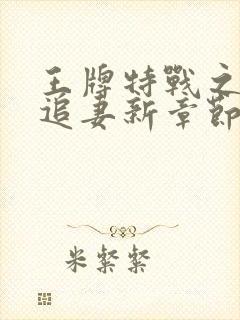 王牌特戰之
追妻新章節
米粲粲